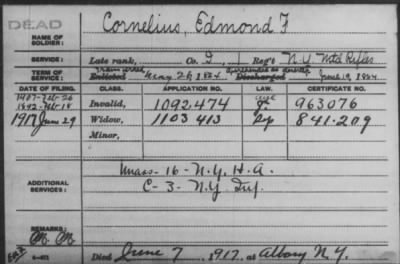 DEAD
NAME OF SOLDIER: Cornelius, Edmond F
SERVICE: Late rank, Co. I, 1 Reg't N.Y. Mtd Rifles
TERM OF SERVICE: Enlisted May 26, 1864 Discharged June 19, 1864
DATE OF FILING. CLASS. APPLICATION NO. LAW. CERTIFICATE NO.
1907-Feb-26
1892-Feb-15 Invalid, 1092.474 963076
1917 June 29 Widow, 1103 413 841.209
Minor,
ADDITIONAL SERVICES:
Unass-16-N.Y. H.A.
C-3-N.Y. Inf.
REMARKS:
6-451 Died June 7, 1917, at Albany N.Y.